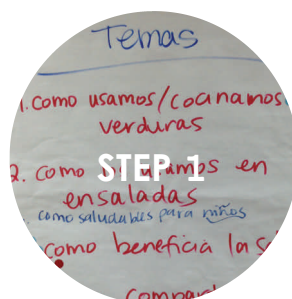 Temas
1. como usamos/cocinamos
verduras
2. como usamos en
STEP 1
ensaladas
como saludables para niños
como beneficia la